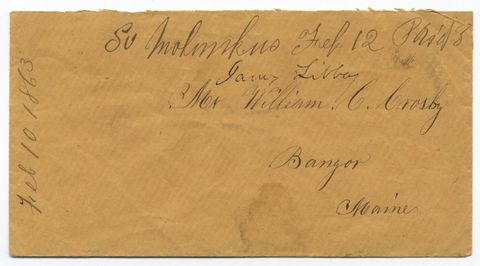 So Molunkus Feb 12 Paid 3
James Libbey
Mr. William. C. Crosby
Bangor
Maine
Feb 10 1863